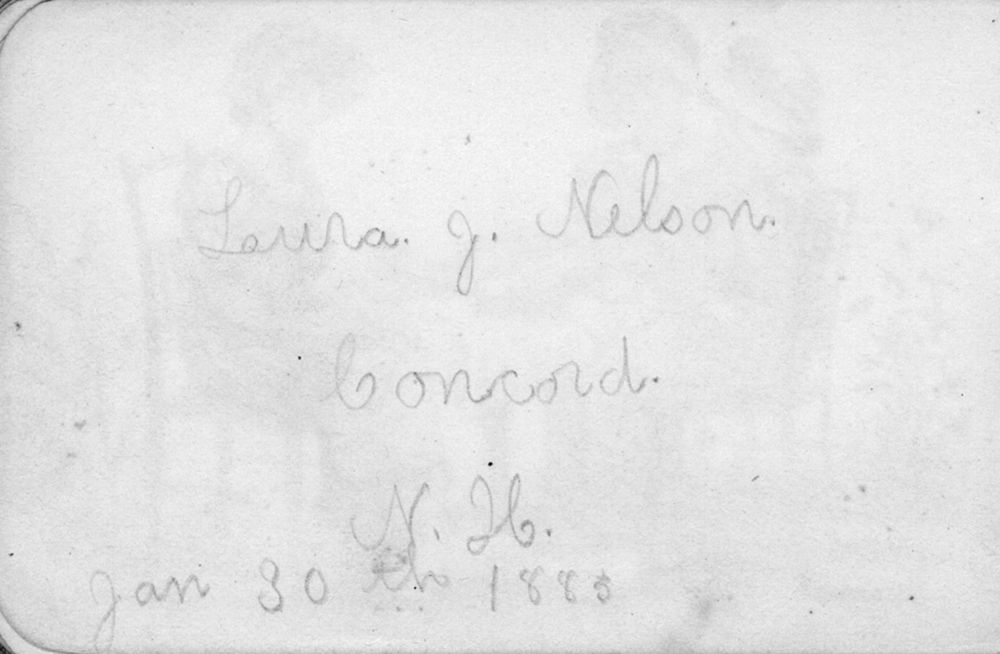 Laura. J. Nelson.
Concord.
N. H.
Jan 30th 1885